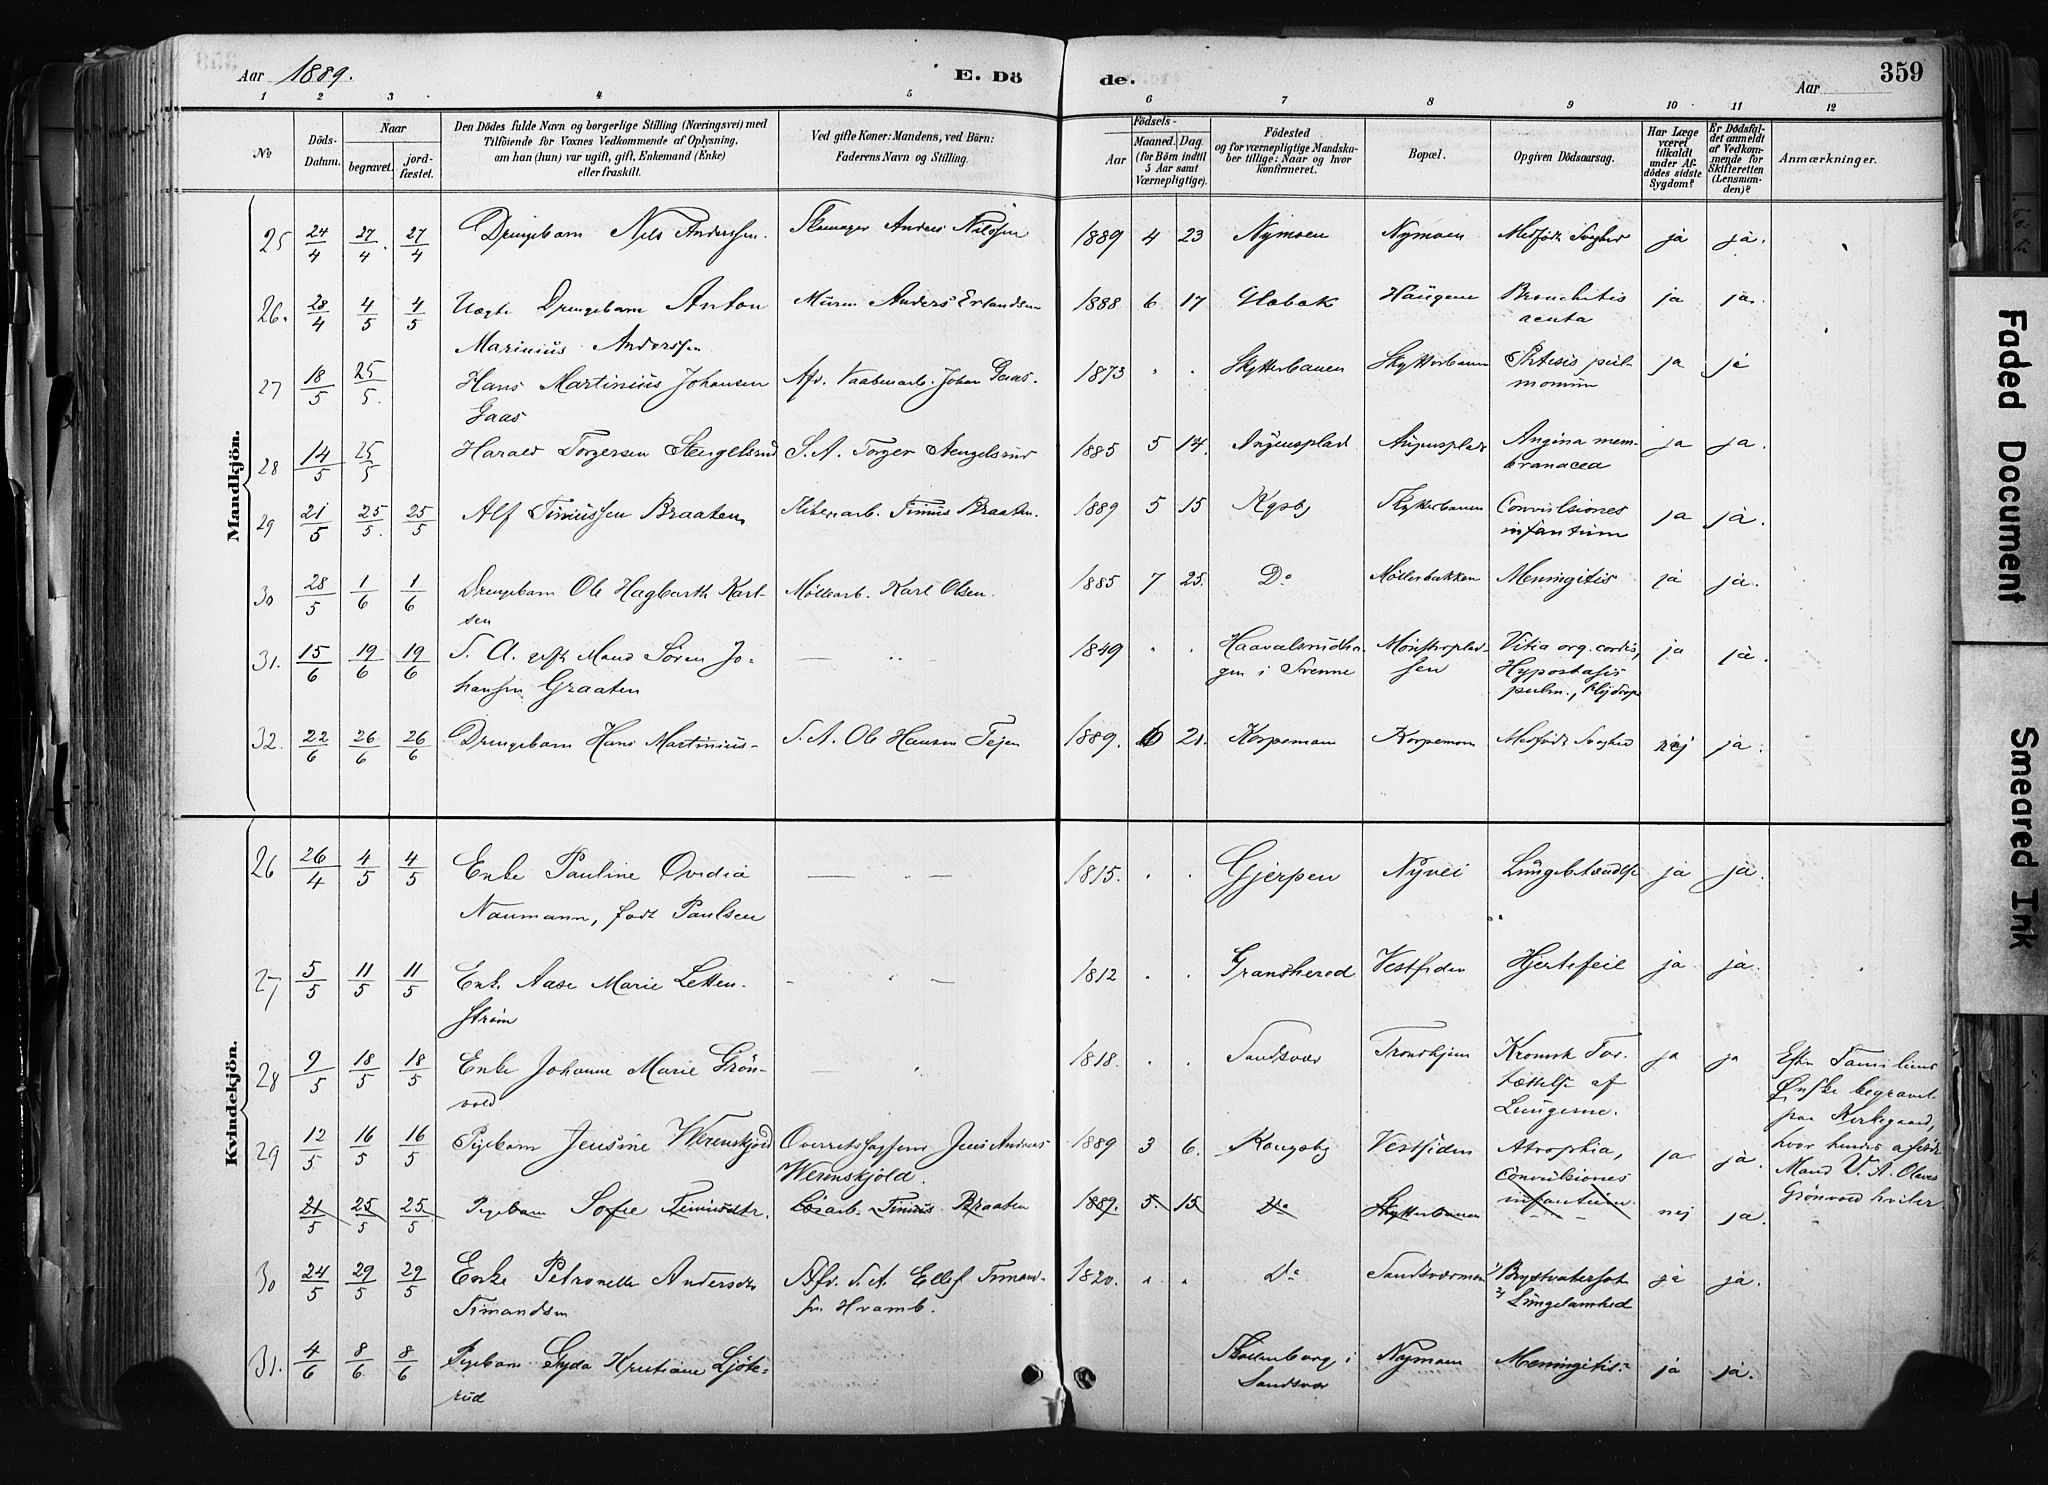 Aar 1889. E. Dö de. Aar 359
1 2 3 4 5 6 7 8 9 10 11 12
No
Döds-Datum.
Naar
begravet. jord-fæstet.
Den Dödes fulde Navn og borgerlige Stilling (Næringsvei) med
Tilföiende for Voxnes Vedkommende af Oplysning,
om han (hun) var ugift, gift, Enkemand (Enke)
eller fraskilt.
Ved gifte Koner: Mandens, ved Börn:
Faderens Navn og Stilling.
Födsels-
Aar Maaned. Dag.
(for Börn indtil
5 Aar samt
Værnepligtige).
Födested
og for værnepligtige Mandska-
ber tillige: Naar og hvor
konfirmeret.
Bopæl.
Opgiven Dödsaarsag.
Har Læge
været
tilkaldt
under Af-
dödes sidste
Sygdom?
Er Dödsfal-
det anmeldt
af Vedkom-
mende for
Skifteretten
(Lensman-
den)?
Anmærkninger.
Mandkjön.
25 24/4 27/4 27/4 Drengebarn Nils Anderssen. Skomager Anders Nilssen 1889 4 23 Nymoen Nymoen Medfödt Svaghed ja ja.
26. 28/4 4/5 4/5 Uægte Drengebarn Anton Murm. Anders Erlandsen 1888 6 17 Haugene Bronchitis ja ja.
Marinius Anderssen acuta
27 18/5 25/5. Hans Martinius Johansen Afd. Vaabenarb. Johan Gaas. 1873 " " Skytterbanen Skytterbanen Phtisis pul- ja ja
Gaas monum
28 14/5 25/5 Harald Torgersen Stengelsrud S. A. Torger Stengelsrud 1885 5 14. Angina mem- ja ja.
branacea
29 21/5 25/5. 25/5 Alf Tiniussen Braaten, Tinius Braaten. 1889 5 15 Kgsbg Skytterbanen Convulsiones ja ja.
infantum
30 28/5 1/6 1/6 Drengebarn Ole Hagbarth Karl- Møllearb. Karl Olsen. 1885 7 25. Do Møllerbakken Meningitis ja ja.
sen
31. 15/6 19/6 19/6 S. A. gift Mand Søren Jo- — " — 1849 " " Haavalsrudha- Mønsterplad- Vitia org. cordis, ja ja.
hansen Graaten gen i Svenne sen Hypostasis
pulm.,
32. 22/6 26/6 26/6 Drengebarn Hans Martinius- S. A. Ole Hansen Tejen 1889. 6 21. Korpemoen Korpemoen Medfödt Svaghed nej ja.
Kvindekjön.
26 26/4 4/5 4/5 Enke Pauline Ovidia — " — 1815. " " Gjerpen Nyvei Lungebetændelse ja ja.
Naumann, født Paulsen
27 5/5 11/5 11/5 Enke Aase Marie Letten- — " — 1812 " " Gransherred Vestsiden Hjertefeil ja ja.
strøm
28 9/5 18/5 18/5 Enke Johanne Marie Grøn- — " 1818. " " Sandsvær Trondhjem Kronisk For- ja ja Efter Familiens
vold tættelse af Ønske begravet
Lungerne. paa Kirkegaard,
29 12/5 16/5 16/5 Pigebarn Jensine Werenskjold Overretssagfører Jens Anders 1889 3 6. Kongsbg Vestsiden Atrophia, ja ja. hvor hendes afdøde
Werenskjöld. Convulsiones Mand V. A. Olaves
21/5 25/5 25/5 Pigebarn Sofie Tiniusdtr. Løsarb. Tinius Braaten 1889. 5. 15 Do Skytterbanen infantum nej ja. Grønvold hviler
30 24/5 29/5 29/5 Enke Petronelle Andersdtr Afd. S. A. Ellef Timand- 1820. " " Do Sandsværmoen 1) Brystvatersot ja ja.
Timandsen sen Hvamb. 2) Lungelamhed
31. 4/6 8/6 8/6 Pigebarn Gyda Kristiane Ljøte- Skollenborg i Nymoen Meningitis. ja ja.
rud Sandsvær
Faded Document
Smeared Ink